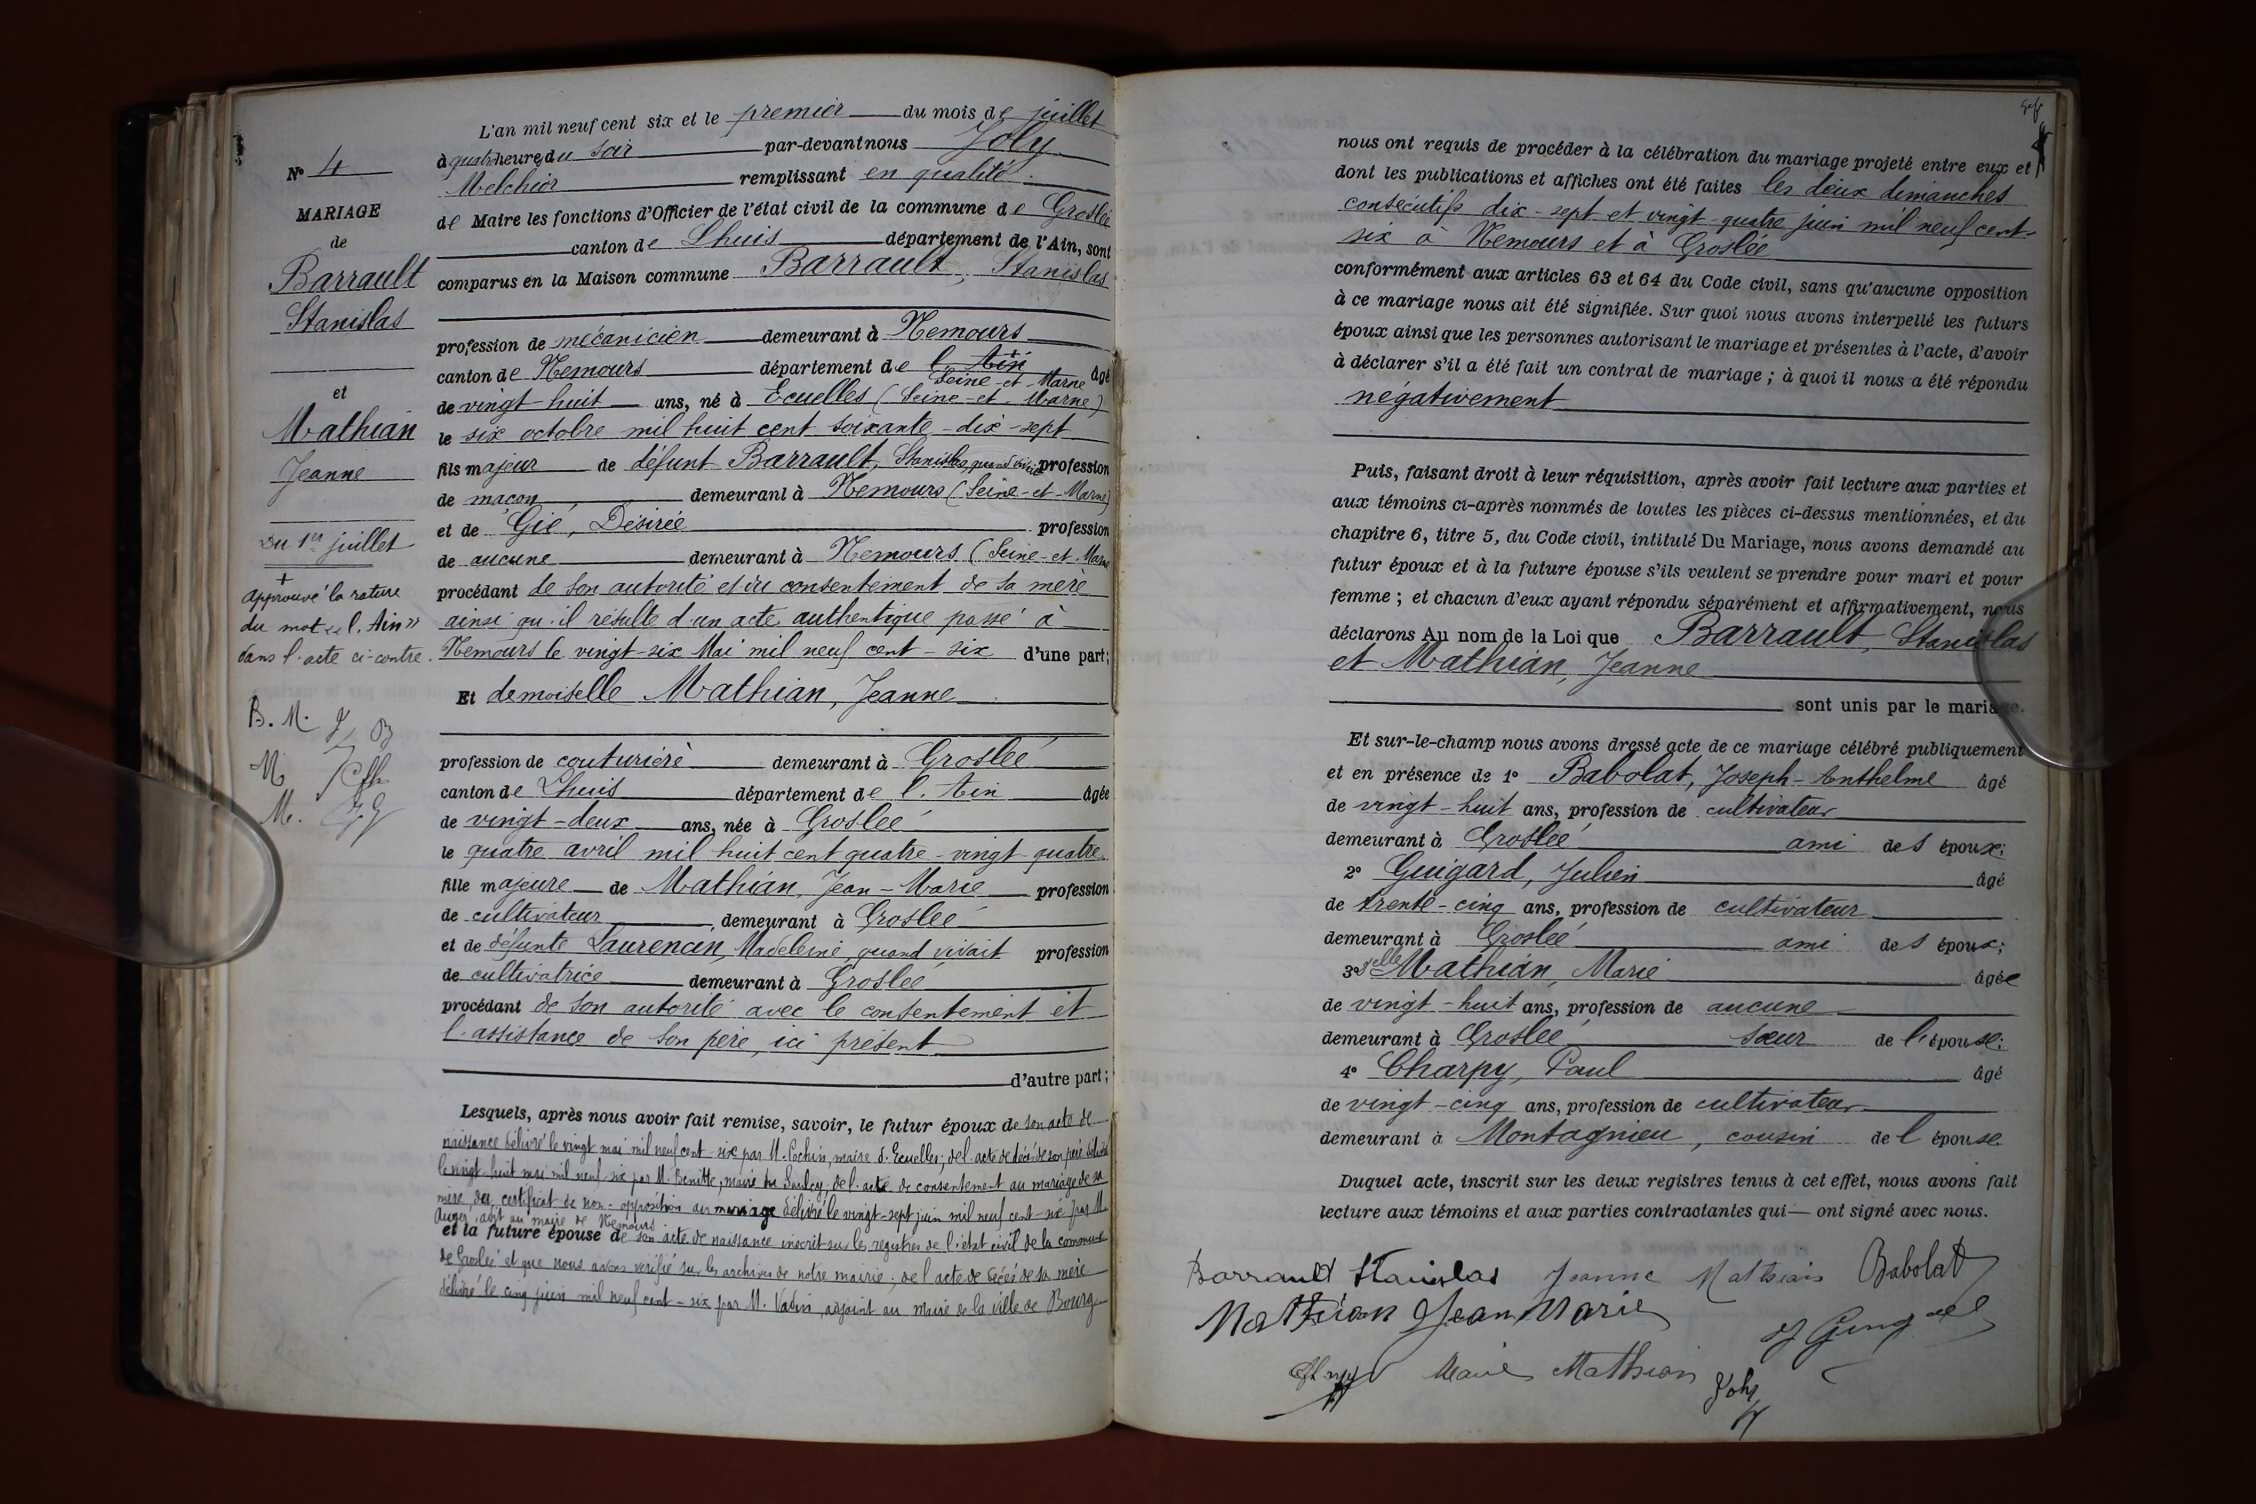 N° 4
MARIAGE
de
Barrault
Stanislas
et
Mathian
Jeanne
Du 1er juillet
+
approuvé la rature
du mot « l'Ain »
dans l'acte ci-contre.
B. M. J. B
M
M.
L'an mil neuf cent six et le premier du mois de juillet
à quatre heures du soir par-devant nous Joly
Melchior remplissant en qualité
de Maire les fonctions d'Officier de l'état civil de la commune de Groslée
canton de Lhuis département de l'Ain, sont
comparus en la Maison commune Barrault, Stanislas
profession de mécanicien demeurant à Nemours
canton de Nemours département de l'Ain + Seine-et-Marne âgé
de vingt-huit ans, né à Ecuelles (Seine-et-Marne)
le six octobre mil huit cent soixante-dix-sept
fils majeur de défunt Barrault, Stanislas, quand vivait profession
de maçon demeurant à Nemours (Seine-et-Marne)
et de Gié, Désirée profession
de aucune demeurant à Nemours (Seine-et-Marne
procédant de son autorité et du consentement de sa mère
ainsi qu'il résulte d'un acte authentique passé à
Nemours le vingt-six Mai mil neuf cent-six d'une part;
Et demoiselle Mathian, Jeanne
profession de couturière demeurant à Groslée
canton de Lhuis département de l'Ain âgée
de vingt-deux ans, née à Groslée
le quatre avril mil huit cent quatre-vingt quatre
fille majeure de Mathian, Jean-Marie profession
de cultivateur, demeurant à Groslée
et de défunte Laurencin, Madeleine, quand vivait profession
de cultivatrice demeurant à Groslée
procédant de son autorité avec le consentement et
l'assistance de son père, ici présent
d'autre part;
Lesquels, après nous avoir fait remise, savoir, le futur époux de son acte de
naissance délivré le vingt mai mil neuf cent-six par M. Cochin, maire d'Ecuelles; de l'acte de décès de son père délivré
le vingt-huit mai mil neuf six par M. Benitte, maire du Saulcy; de l'acte de consentement au mariage de sa
mère, du certificat de non-opposition au mariage délivré le vingt-sept juin mil neuf cent-six par M
Auger, adjt au maire de Nemours
et la future épouse de son acte de naissance inscrit sur les registres de l'état civil de la commune
de Groslée et que nous avons vérifié sur les archives de notre mairie; de l'acte de décès de sa mère
délivré le cinq juin mil neuf cent-six par M. Vadin, adjoint au maire de la ville de Bourg
nous ont requis de procéder à la célébration du mariage projeté entre eux et
dont les publications et affiches ont été faites les deux dimanches
consécutifs dix-sept et vingt-quatre juin mil neuf cent-
six à Nemours et à Groslée
conformément aux articles 63 et 64 du Code civil, sans qu'aucune opposition
à ce mariage nous ait été signifiée. Sur quoi nous avons interpellé les futurs
époux ainsi que les personnes autorisant le mariage et présentes à l'acte, d'avoir
à déclarer s'il a été fait un contrat de mariage; à quoi il nous a été répondu
négativement
Puis, faisant droit à leur réquisition, après avoir fait lecture aux parties et
aux témoins ci-après nommés de toutes les pièces ci-dessus mentionnées, et du
chapitre 6, titre 5, du Code civil, intitulé Du Mariage, nous avons demandé au
futur époux et à la future épouse s'ils veulent se prendre pour mari et pour
femme; et chacun d'eux ayant répondu séparément et affirmativement, nous
déclarons Au nom de la Loi que Barrault, Stanislas
et Mathian, Jeanne
sont unis par le mariage.
Et sur-le-champ nous avons dressé acte de ce mariage célébré publiquement
et en présence de 1° Babolat, Joseph-Anthelme âgé
de vingt-huit ans, profession de cultivateur
demeurant à Groslée ami des époux;
2° Guigard, Julien âgé
de trente-cinq ans, profession de cultivateur
demeurant à Groslée ami des époux;
3° Delle Mathian, Marie âgée
de vingt-huit ans, profession de aucune
demeurant à Groslée sœur de l'épouse;
4° Charpy, Paul âgé
de vingt-cinq ans, profession de cultivateur
demeurant à Montagnieu, cousin de l'épouse.
Duquel acte, inscrit sur les deux registres tenus à cet effet, nous avons fait
lecture aux témoins et aux parties contractantes qui — ont signé avec nous.
Barrault Stanislas Jeanne Mathian Babolat
Mathian Jean Marie
Marie Mathian Joly